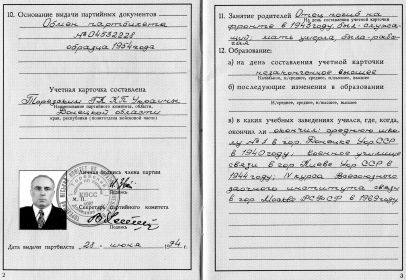 10. Основание выдачи партийных документов
Обмен партбилета
№ 04532228
образца 1954 года
Учетная карточка составлена
Торезским ГК КП Украины
Наименование партийного комитета, области,
Донецкой области
края, республики (политотдела войсковой части)
Личная подпись члена партии
М. П.
Подпись
Секретарь партийного комитета
Подпись
Дата выдачи партбилета 28 июня 1974 г.
2
11. Занятие родителей Отец погиб на
На день составления учетной карточки
фронте в 1943 году, был служа-
щий, мать умерла была рабо-
чая
12. Образование:
а) на день составления учетной карточки
незаконченное высшее
Начальное, н/среднее, среднее, н/высшее, высшее
б) последующие изменения в образовании
Н/среднее, среднее, н/высшее, высшее
в) в каких учебных заведениях учился, где, когда,
окончил ли окончил: среднюю школу
№ 1 в гор Донецке УССР
в 1940 году, военное училище
связи в гор Киеве УССР в
1944 году; IV курса Всесоюзного
заочного института связи
в гор Москве РСФСР в 1969 году
3